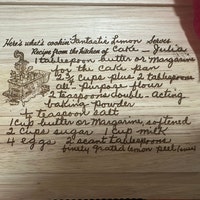 Here's what's cookin' Fantastic Lemon Serves
Recipe from the kitchen of Cake - Julia
1 tablespoon butter or Margarine
for the cake pan
2 3/4 cups plus 2 tablespoons
all-purpose flour
2 teaspoons double-acting
baking powder
teaspoon salt
1 cup butter or Margarine, softened
2 cups sugar 1 cup milk
4 eggs 2 scant tablespoons
finely grated lemon peel